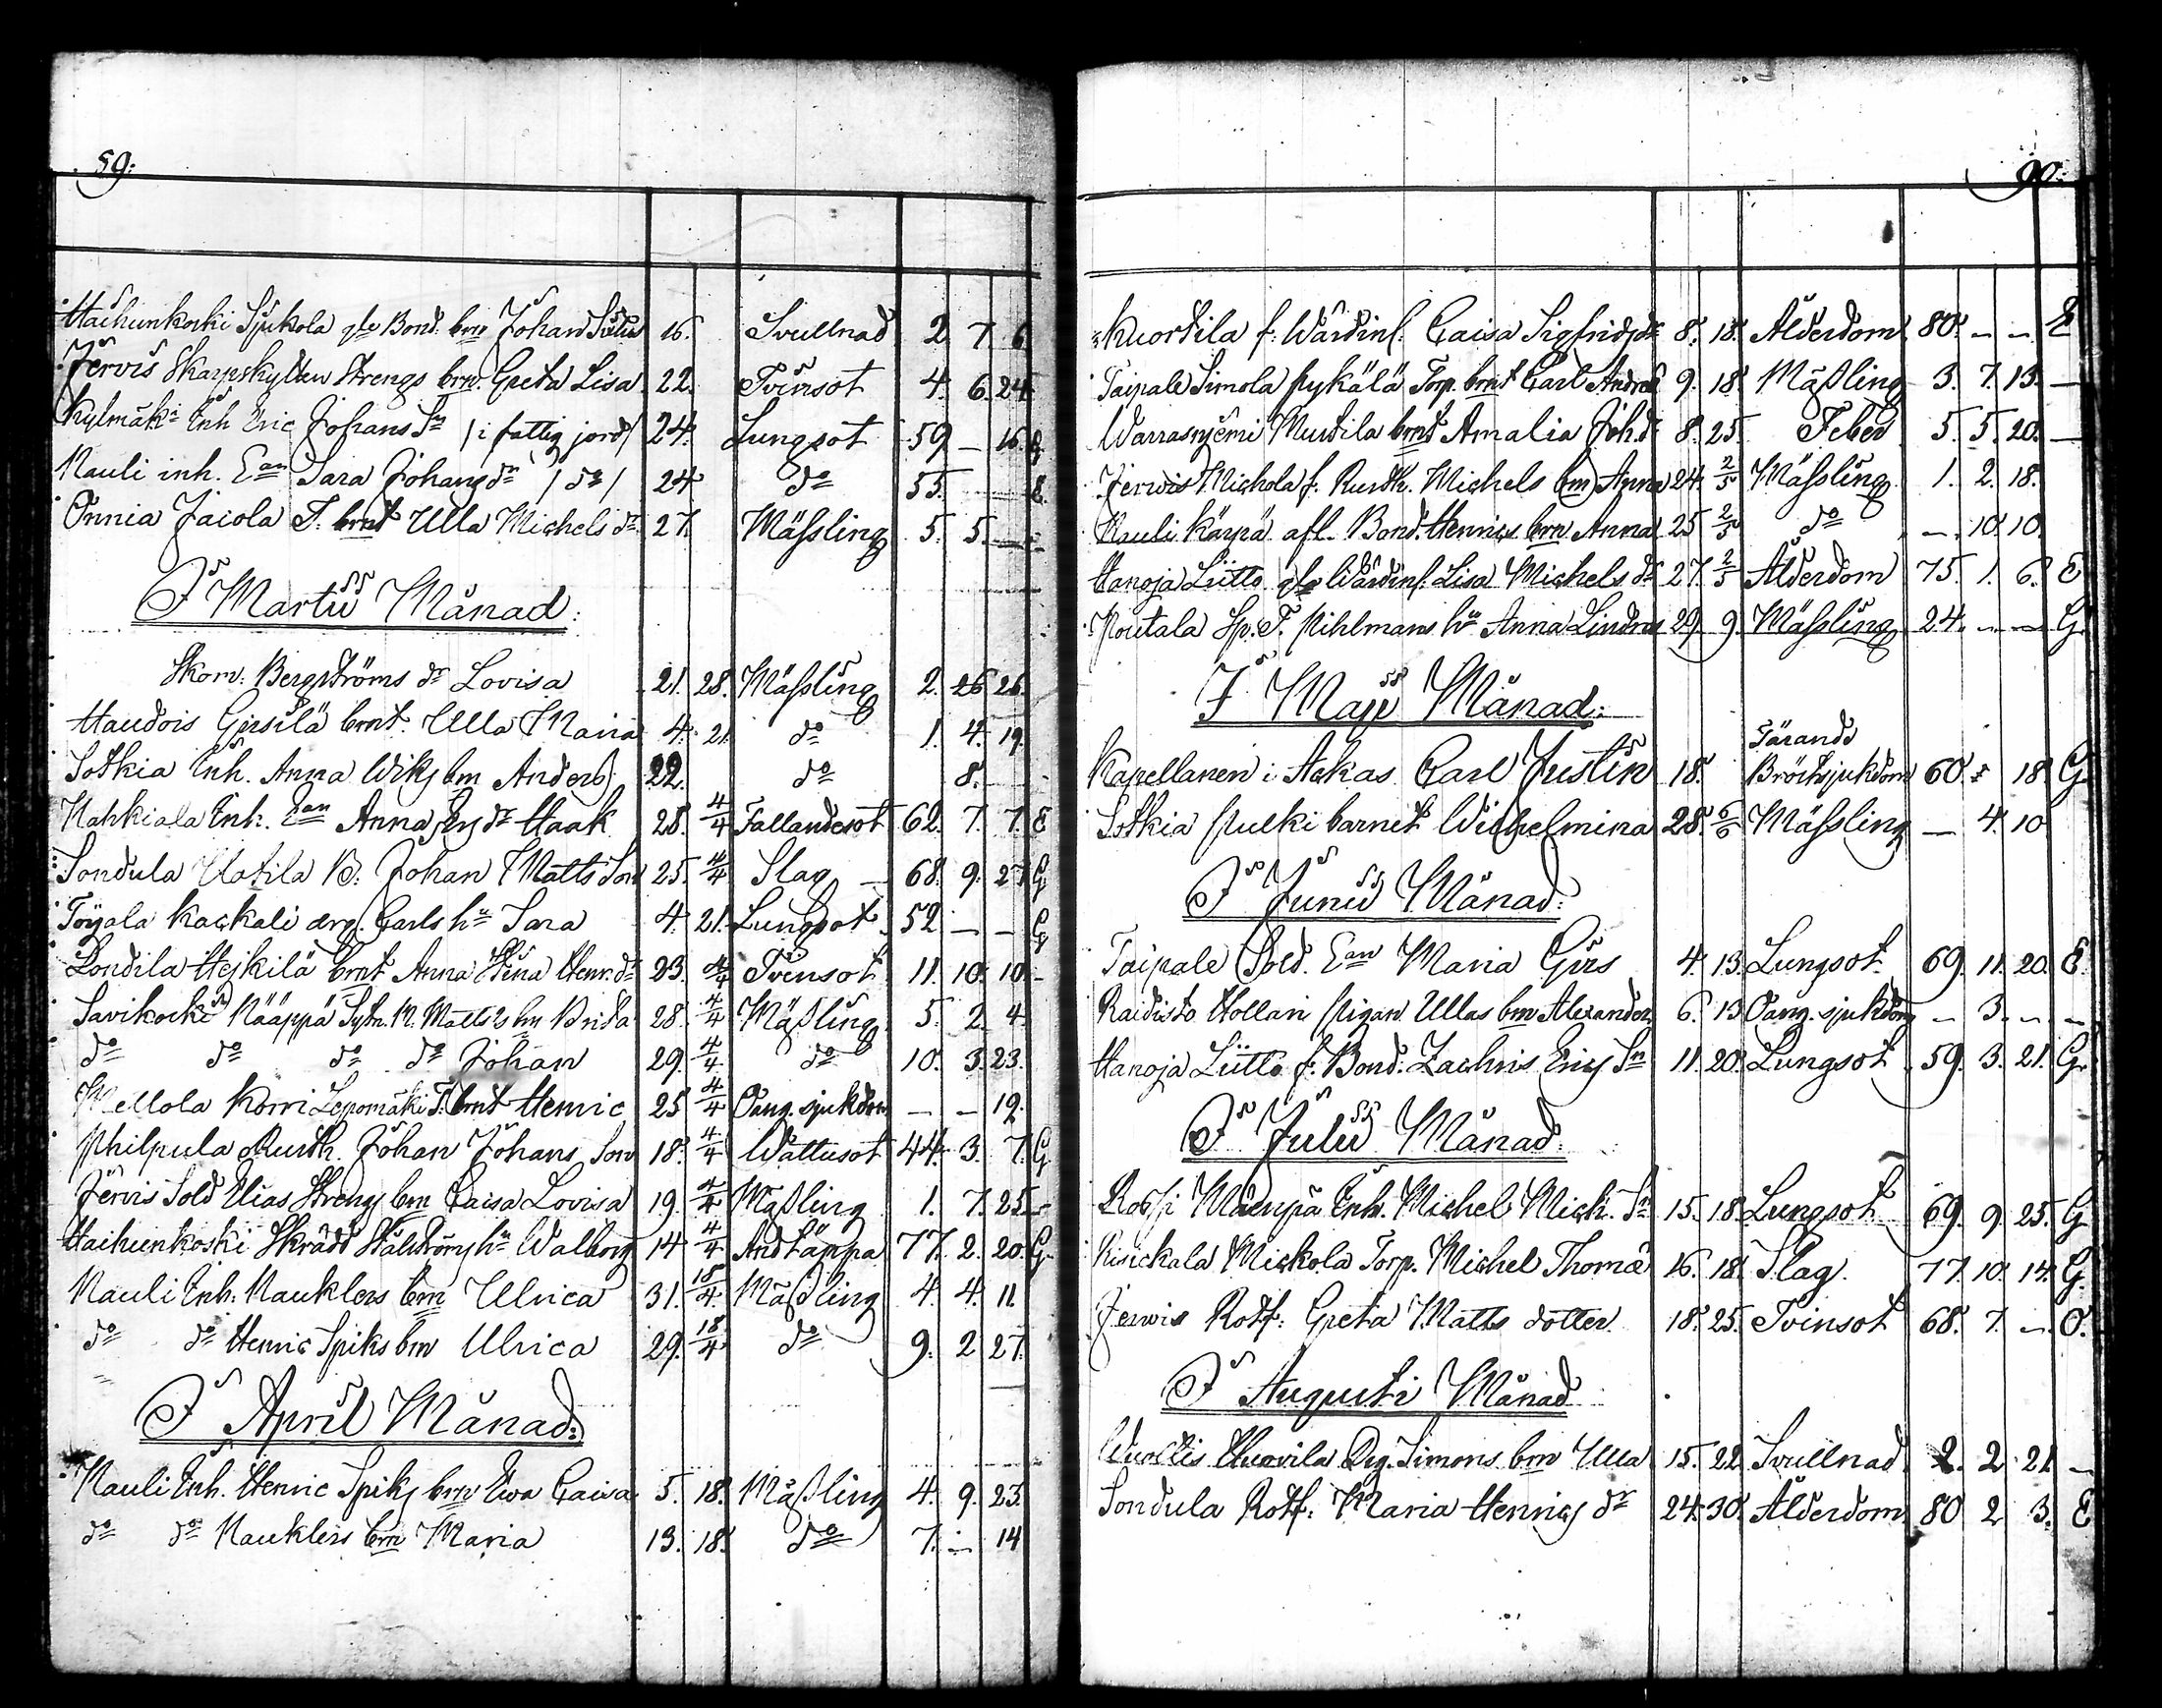 59:
Haihunkoski Sjukola gle Bond. brn Johan 16. Svullnad 2 7 6
Jervis Skarpskytten Strengs brn. Greta Lisa 22. Tvinsot 4. 6. 24
Kylmäki Inh Eric Johans Sn / i fattig jord / 24. Lungsot 59 — 16. G
Nauli inh. Ean Sara Johans dr / do / 24 do 55. — — E
Onnia Jaiola T. brnt Ulla Michels dr 27. Mässling 5. 5. —
I Martii Månad:
Skom. Bergströms dr Lovisa 21. 28. Mässling 2. 26 26.
Haudois Girsilä brnt. Ulla Maria 4. 21. do 1. 4. 19.
Sotkia Inh. Anna Wiks brn Anders 22. do 8. —
Nahkiala Inh. Ean Anna Ers dr Haak 28. 4/4 Fallandesot 62. 7. 7. E
Sondula Uotila B. Johan Matts Son 25. 4/4 Slag — 68. 9. 27. G
Töyala Kackali drg. Carls hu Sara 4. 21. Lungsot 52 — — G
Londila Hejkilä brnt Anna Stina Henr. dr 23. 4/4 Tvinsot 11. 10. 10. -
Savikoski Nääppä Sytn. M. Matts's brn Brita 28. 4/4 Mässling 5. 2. 4.
do do do do Johan 29. 4/4 do 10. 3. 23.
Mellola Korri Lepomäki T. brnt Henric 25 4/4 Oang. sjukdom — — 19.
Philpula Rusth. Johan Johans Son 18. 4/4 Wattusot 44. 3. 7. G
Jervis Sold Elias Strengs brn Caisa Lovisa 19. 4/4 Mässling 1. 7. 25. -
Haihunkoski Skrädd Stålströms hu Walborg 14 4/4 Andtäppa 77. 2. 20. G
Nauli Inh. Nauklers brn Ulrica 31. 18/4 Mässling 4. 4. 11.
do do Henric Spiks brn Ulrica 29. 18/4 do 9. 2 27.
I April Månad:
Nauli Inh. Henric Spiks brn Ewa Caisa 5. 18. Mässling 4. 9. 23.
do do Nauklers brn Maria 13. 18. do 7. — 14
90.
Kuortila f. Wärdinl. Caisa Sigfrids dr 8. 18. Ålderdom 80. — — E
Taipale Simola Pykälä Torp. brnt Carl Andreas 9. 18. Mässling 3. 7. 13. —
Warrasnjemi Mustila brnt Amalia Joh. dr 8. 25. Feber 5. 5. 20. —
Jerwis Michola f. Rusth. Michels brn Anna 24. 2/5 Mässling 1. 2. 18.
Nauli Kärpä afl. Bond. Henrics brn Anna 25 2/5 do — 10. 10.
Hanoja Lütto gla Wärdinl. Lisa Michels dr 27. 2/5 Ålderdom 75. 1. 6. E
Poutala Sp. T. Pihlmans hu Anna Lindroos 29. 9. Mässling 24. — — G
I Maji Månad:
Kapellanen i Ackas Carl Justin 18. Tärande Bröstsjukdom 60. - 18. G
Sotkia Pulki barnet Wilhelmina 28. 6/6 Mässling — 4. 10
I Junii Månad:
Taipale Sold. Ean Maria Girs 4. 13. Lungsot 69. 11. 20. E
Raidisto Hollari Pigan Ullas brn Alexander 6. 13 Oang. sjukdom — 3. — —
Hanoja Lütto f. Bond. Zachris Erics Sn 11. 20. Lungsot 59. 3. 21. G
I Julii Månad:
Rossi Mäenpä Inh. Michel Mich. Sn 15. 18. Lungsot 69. 9. 25. G
Mickola Torp. Michel Thomæ 16. 18. Slag. 77. 10. 14. G
Jerwis Rotf: Greta Matts dotter 18. 25. Tvinsot 68. 7. — O.
I Augusti Månad
Huovila Drg. Simons brn Ulla 15. 22. Svullnad 2. 2 21. —
Sondula Rotf. Maria Henrics dr 24. 30. Ålderdom 80 2 3. E